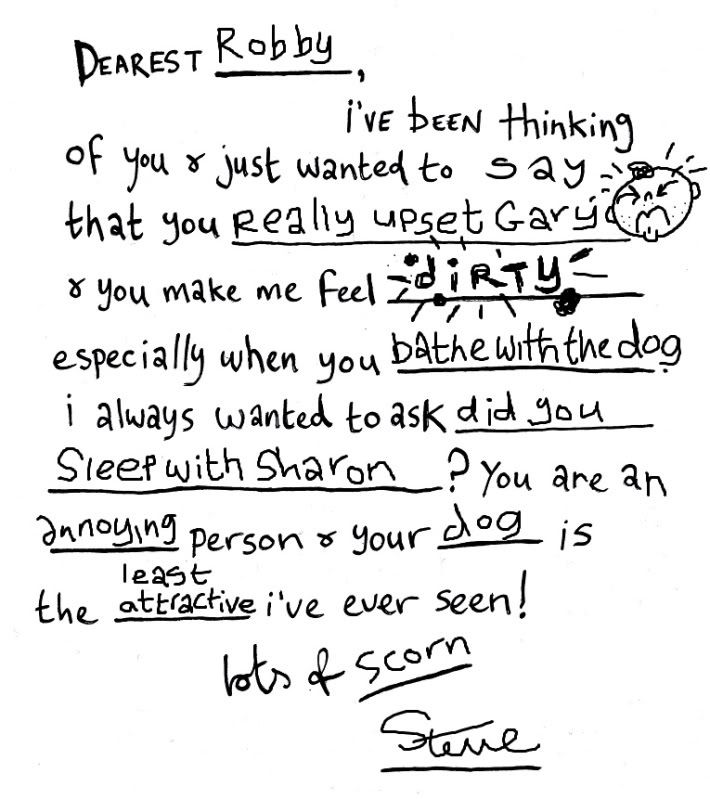 DEAREST Robby,
i'VE bEEN thinking
of you & just wanted to say
that you really upset Gary
& you make me feel dirty
especially when you bathe with the dog
i always wanted to ask did you
Sleep with Sharon ? You are an
annoying person & your dog is
least
the attractive i've ever seen!
lots of scorn
Steve